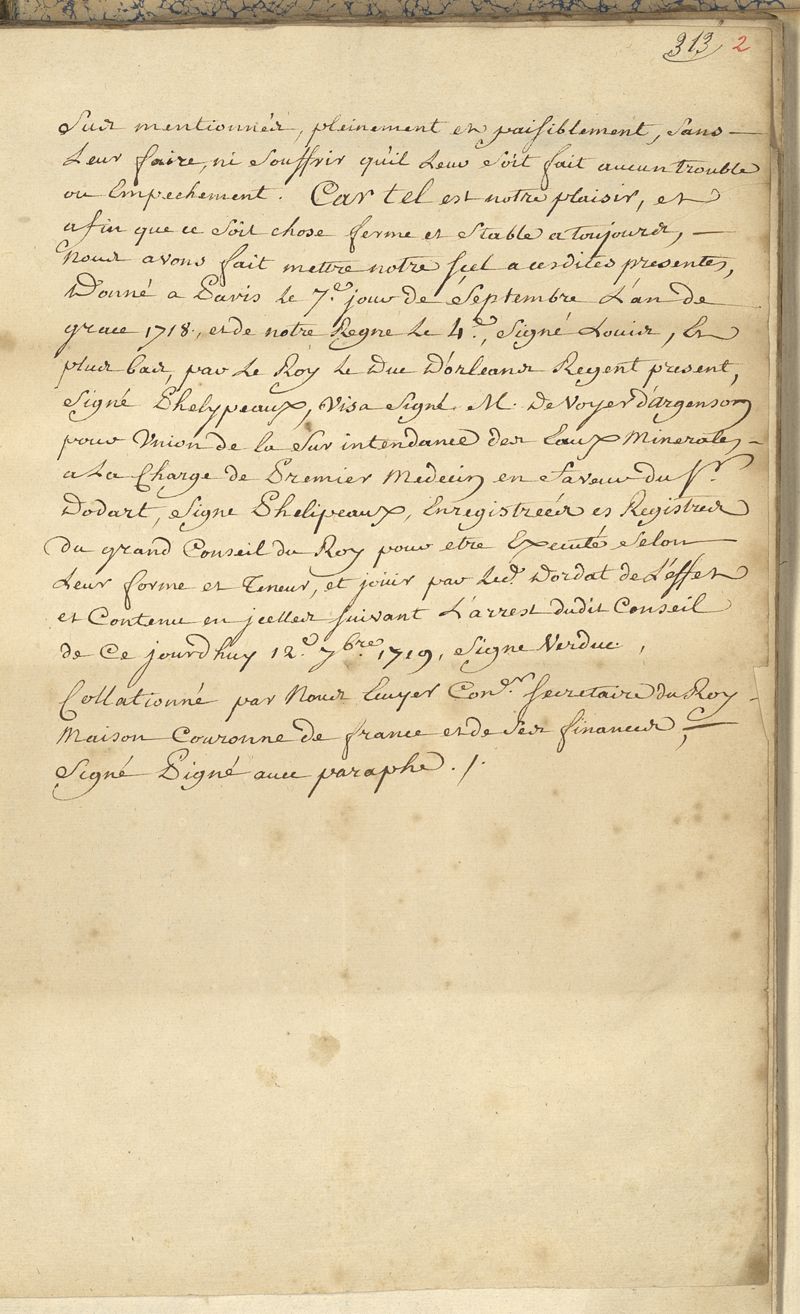 313 2
Sus mentionnés, pleinement et paisiblement, sans
Leur faire, ni souffrir qu'il leur soit fait aucun trouble
ou Empechement. Car tel est notre plaisir, et
afin que ce soit chose ferme et stable a toujours,
Nous avons fait mettre notre scel a cesdites presentes,
Donné a Paris le 7.e jour de Septembre L'an de
grace 1718., et de notre Regne le 4.e, Signé Louis, Et
plus bas, par le Roy le Duc D'orleans Regent present,
Signé Phelypeaux, Visa Signé M. De Voyer d'Argenson
pour Union de la Sur intendance des Eaux Minerales
a La Charge de Premier Medecin en faveur du Sr.
Dodart, Signe Phelipeaux, Enregistreés es Registres
du grand Conseil du Roy pour etre Executé Selon
Leur forme et Teneur, et jouir par led. Dordat de L'effet
et Contenu en jcelles suivant L'arrest dudit Conseil
de Ce jourdhuy 12.e 7bre. 1719, Signe Verduc,
Collationné par Nous Ecuyer Con.er Secretaire du Roy
Maison Couronne de france et de ses finances,
Signé Pigné avec paraphe ./.